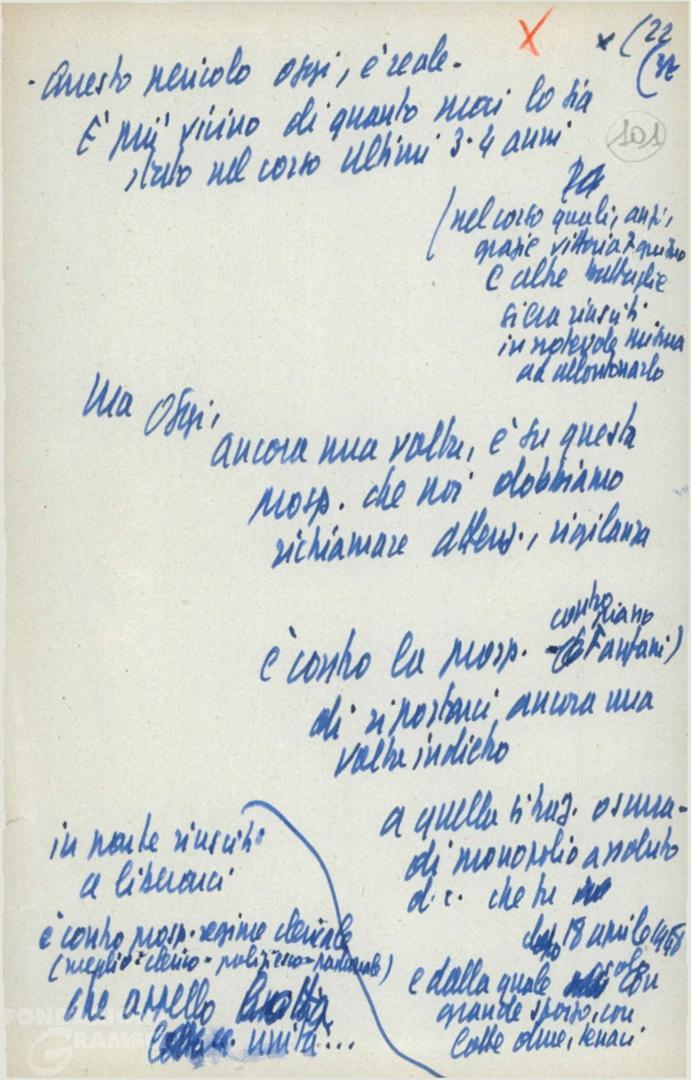 x (22
(32
101
- Questo pericolo oggi, è reale -
E' più vicino di quanto mai lo sia
stato nel corso ultimi 3-4 anni
(nel corso quali, anzi,
grazie vittoria 7 giugno
e altre battaglie
si era riusciti
in notevole misura
ad allontanarlo
Ma oggi,
ancora una volta, è su questa
prosp. che noi dobbiamo
richiamare attenz., vigilanza
è contro la prosp.
contro piano
Fanfani)
di riportarci ancora una
volta indietro
a quella situaz. oscura
di monopolio assoluto
d.c. che fu
dopo 18 aprile 1948
e dalla quale solo con
grande sforzo, con
lotte dure, tenaci
in parte riusciti
a liberarci
è contro prosp. regime clericale
(meglio = clerico - poliziesco - padronale)
che appello
unità...
FONDAZIONE
GRAMSCI